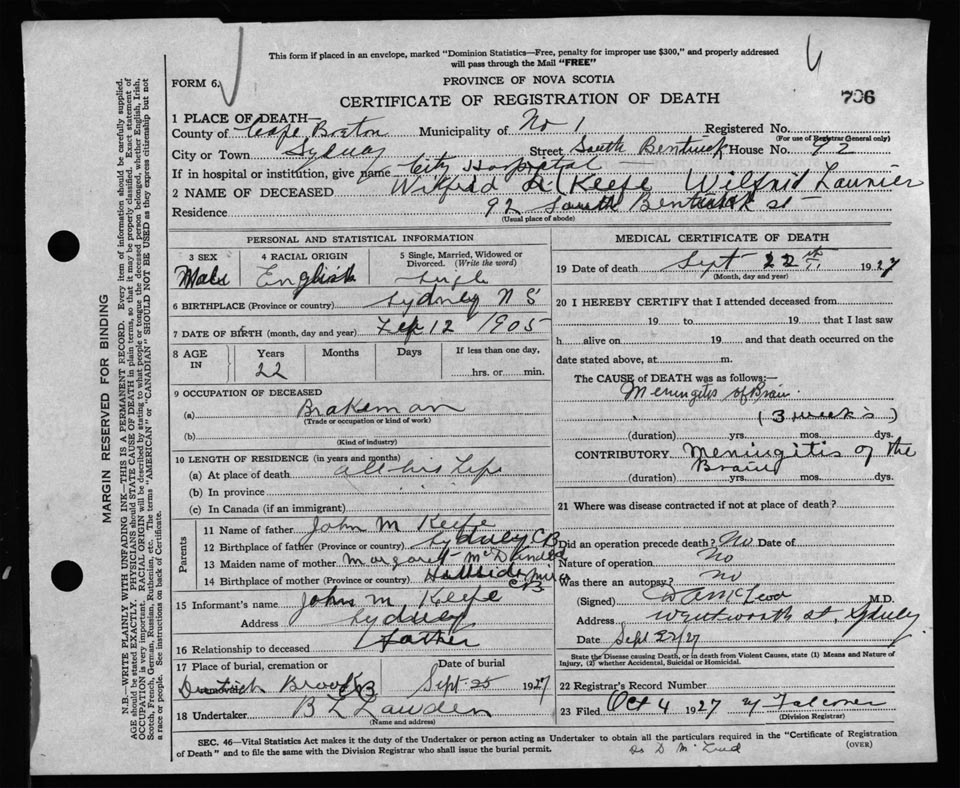 This form if placed in an envelope, marked "Dominion Statistics—Free, penalty for improper use $300," and properly addressed
will pass through the Mail "FREE"
FORM 6.
PROVINCE OF NOVA SCOTIA
CERTIFICATE OF REGISTRATION OF DEATH
706
1 PLACE OF DEATH—
County of Cape Breton Municipality of No 1 Registered No.
(For use of Registrar General only)
City or Town Sydney Street South Bentinck House No. 92
If in hospital or institution, give name City Hospital
2 NAME OF DECEASED Wilfred L Keefe Wilfrid Laurier
Residence 92 South Bentinck st
(Usual place of abode)
PERSONAL AND STATISTICAL INFORMATION
3 SEX Male
4 RACIAL ORIGIN English
5 Single, Married, Widowed or Divorced. (Write the word) Single
6 BIRTHPLACE (Province or country) Sydney N S
7 DATE OF BIRTH (month, day and year) Feb 12 1905
8 AGE IN Years Months Days If less than one day,
22 hrs. or min.
9 OCCUPATION OF DECEASED
(a) Brakeman
(Trade or occupation or kind of work)
(b)
(Kind of industry)
10 LENGTH OF RESIDENCE (in years and months)
(a) At place of death all his Life
(b) In province
(c) In Canada (if an immigrant)
Parents
11 Name of father John M Keefe
12 Birthplace of father (Province or country) Sydney C B
13 Maiden name of mother Margaret
14 Birthplace of mother (Province or country) Hillside Mira
CB
15 Informant's name John M Keefe
Address Sydney
16 Relationship to deceased father
17 Place of burial, cremation or removal Date of burial
Dutch Brook CB Sept 25 1927
18 Undertaker B L Lawden
(Name and address)
MEDICAL CERTIFICATE OF DEATH
19 Date of death Sept 22nd 1927
(Month, day and year)
20 I HEREBY CERTIFY that I attended deceased from
19 to 19 that I last saw
h alive on 19 and that death occurred on the
date stated above, at m.
The CAUSE of DEATH was as follows:—
Meningitis of Brain
(3 weeks)
(duration) yrs. mos. dys.
CONTRIBUTORY Meningitis of the
Brain
(duration) yrs. mos. dys.
21 Where was disease contracted if not at place of death?
Did an operation precede death? No Date of
Nature of operation No
Was there an autopsy? no
(Signed) M.D.
Address Wentworth st, Sydney
Date Sept 22/27
State the Disease causing Death, or in death from Violent Causes, state (1) Means and Nature of
Injury, (2) whether Accidental, Suicidal or Homicidal.
22 Registrar's Record Number
23 Filed Oct 4 1927 Falconer
(Division Registrar)
SEC. 46—Vital Statistics Act makes it the duty of the Undertaker or person acting as Undertaker to obtain all the particulars required in the "Certificate of Registration
of Death" and to file the same with the Division Registrar who shall issue the burial permit.
(OVER)
MARGIN RESERVED FOR BINDING
N.B.—WRITE PLAINLY WITH UNFADING INK—THIS IS A PERMANENT RECORD. Every item of information should be carefully supplied.
AGE should be stated EXACTLY. PHYSICIANS should STATE CAUSE OF DEATH in plain terms, so that it may be properly classified. Exact statement of
OCCUPATION is very important. RACIAL ORIGIN will be described by stating to what people or tongue the deceased person belonged, whether English, Irish,
Scotch, French, German, Russian, Ruthenian, etc. The terms "AMERICAN" or "CANADIAN" SHOULD NOT BE USED as they express citizenship but not
a race or people. See instructions on back of Certificate.